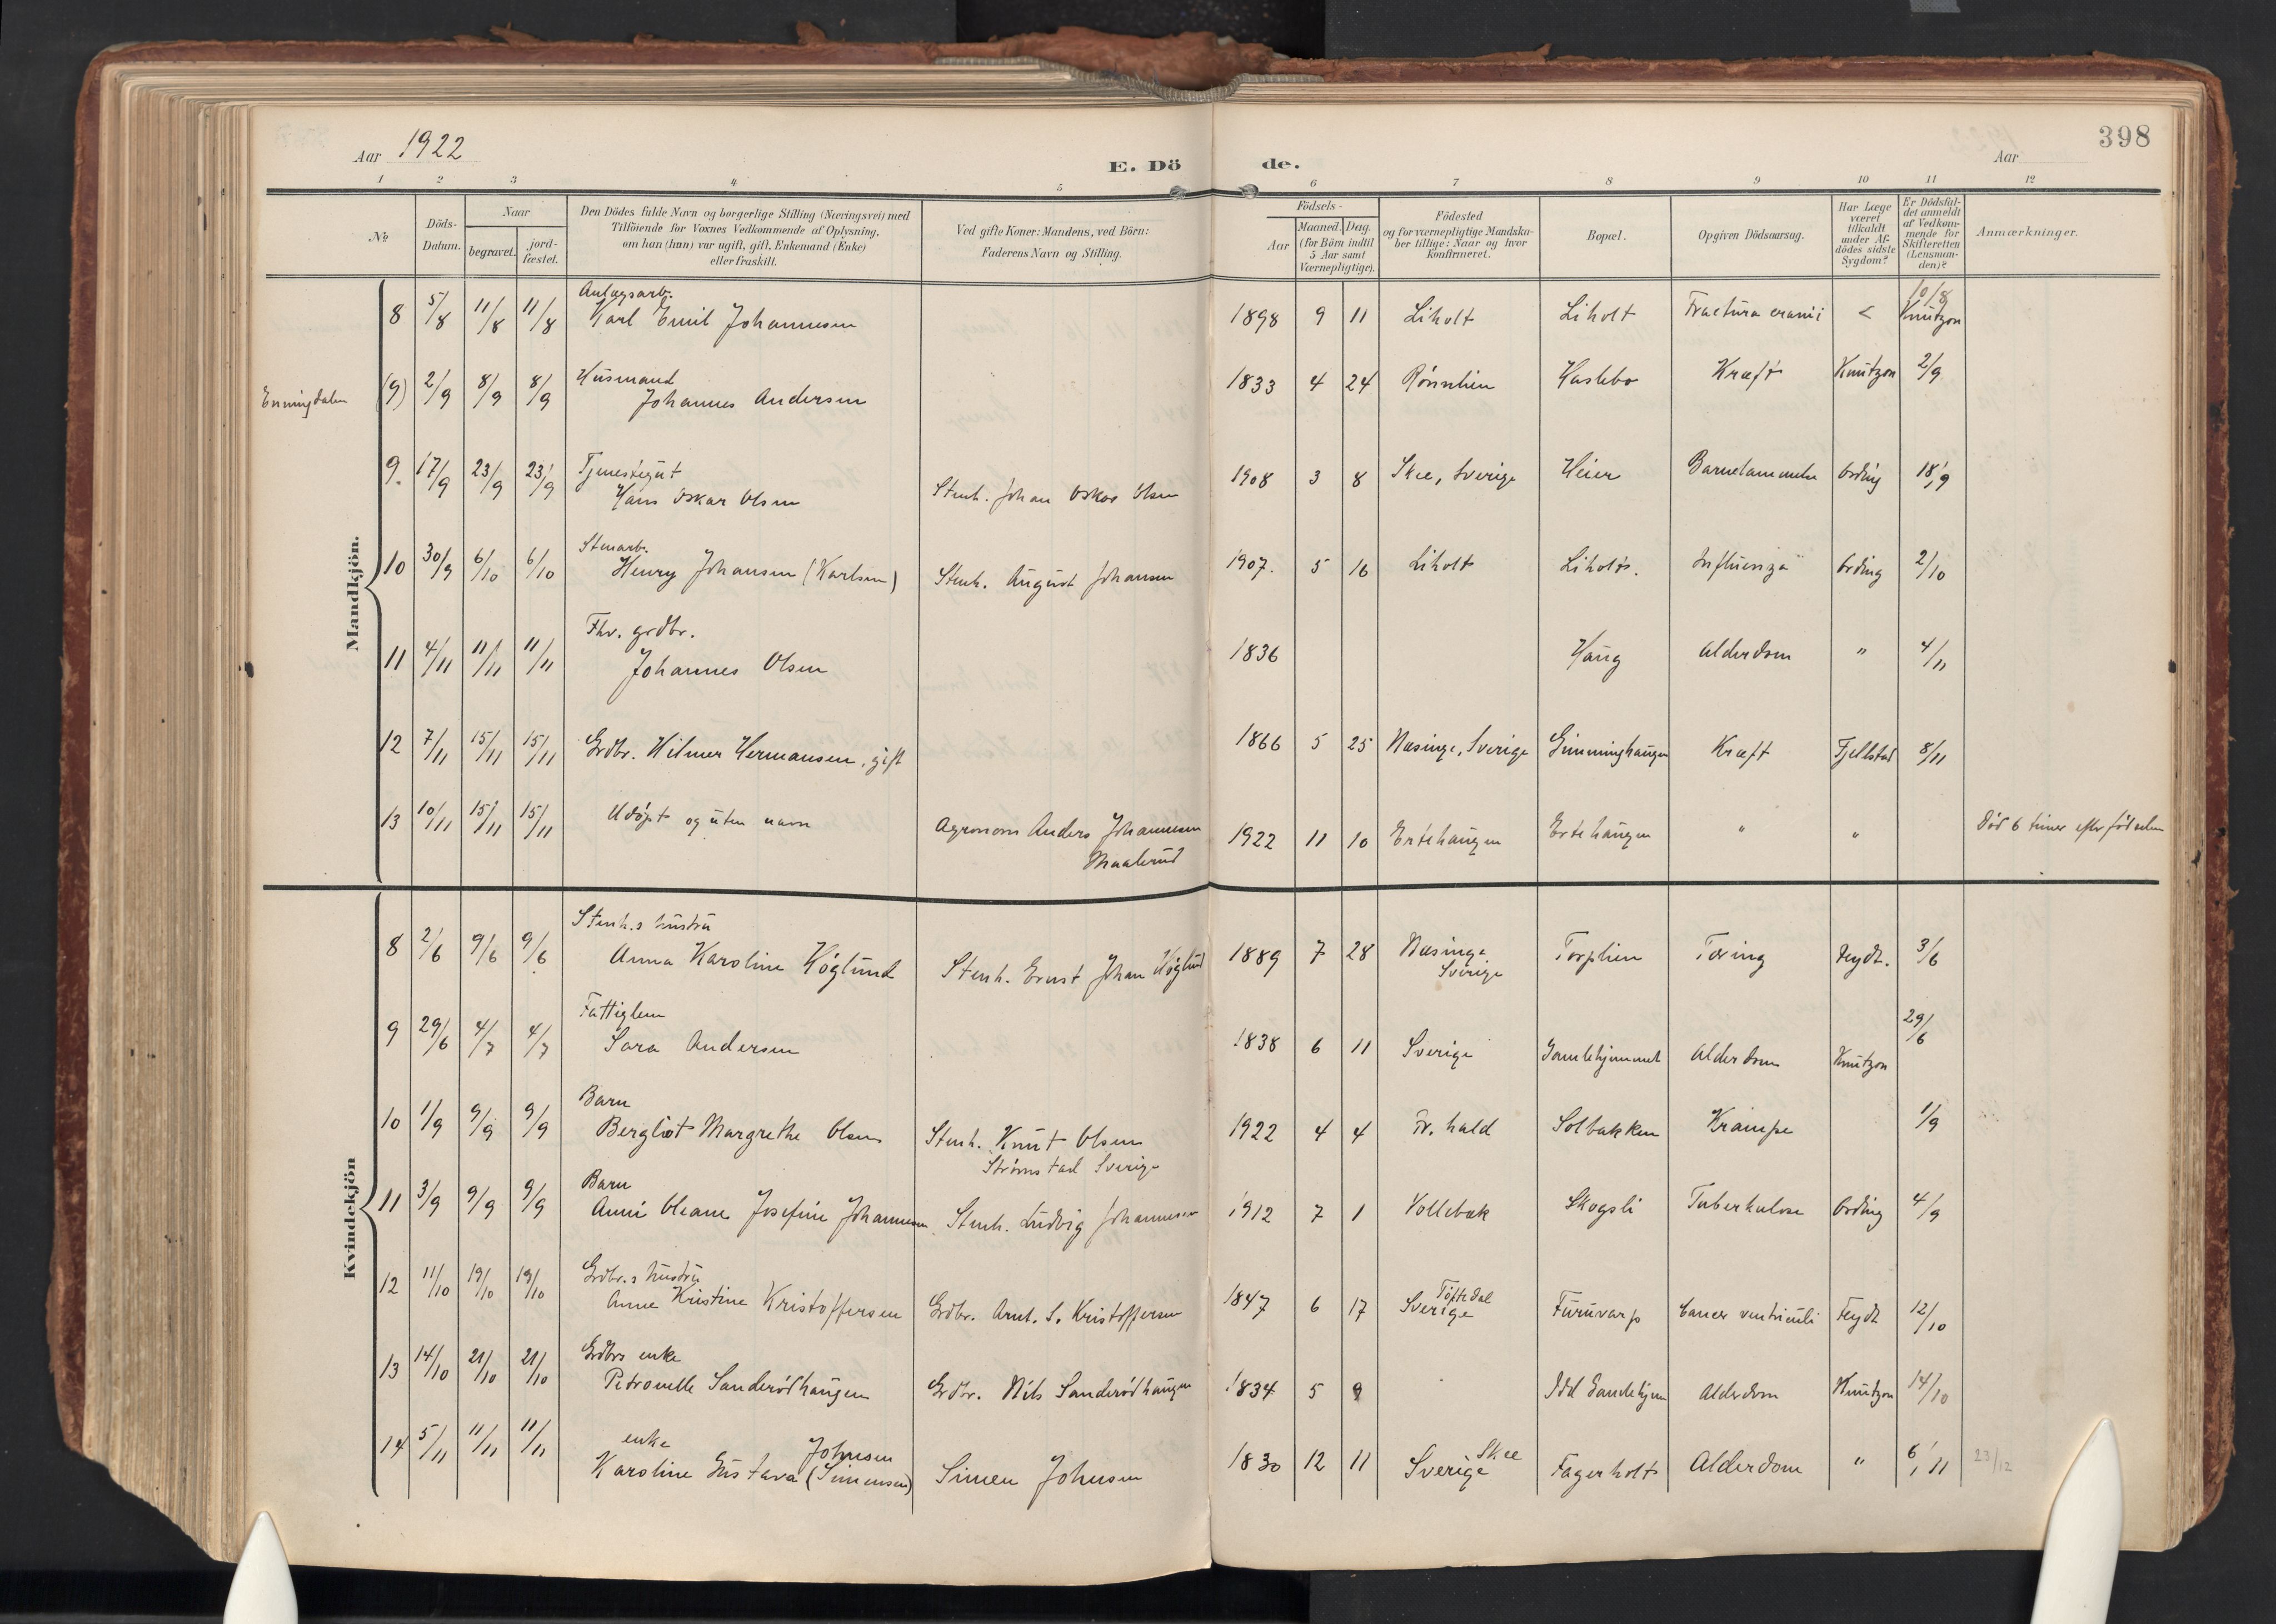 398
Aar 1922
E. Dö de.
Aar
1 2 3 4 5 6 7 8 9 10 11 12
No.
Döds-Datum.
Naar
begravet.
jord-fæstet.
Den Dödes fulde Navn og borgerlige Stilling (Næringsvei) med
Tilföiende for Voxnes Vedkommende af Oplysning,
om han (hun) var ugift, gift, Enkemand (Enke)
eller fraskilt.
Ved gifte Koner: Mandens, ved Börn:
Faderens Navn og Stilling.
Födsels-
Aar
Maaned. Dag.
(for Börn indtil
5 Aar samt
Værnepligtige).
Födested
og for værnepligtige Mandska-
ber tillige: Naar og hvor
konfirmeret.
Bopæl.
Opgiven Dödsaarsag.
Har Læge
været
tilkaldt
under Af-
dödes sidste
Sygdom?
Er Dödsfal-
det anmeldt
af Vedkom-
mende for
Skifteretten
(Lensman-
den)?
Anmærkninger.
Mandkjön.
8 5/8 11/8 11/8 Anlægsarb. Karl Emil Johannesen 1898 9 11 Liholt Liholt Fractura cranii < Knutzon 10/8
Enningdalen (9) 2/9 8/9 8/9 Husmand Johannes Andersen 1833 4 24 Rønnlien Haslebo Kræft Knutzon 2/9
9. 17/9 23/9 23/9 Tjenestegut Hans Oskar Olsen Stenh. Johan Oskar Olsen 1908 3 8 Skee, Sverige Heier Barnelammelse Ording 18/9
10 30/9 6/10 6/10 Stenarb. Henry Johansen (Karlsen) Stenh. August Johansen 1907. 5 16 Liholt Liholt. Influenza Ording 2/10
11 4/11 11/11 11/11 Fhv. grdbr. Johannes Olsen 1836 Haug Alderdom " 4/11
12 7/11 15/11 15/11 Grdbr. Hilmer Hermansen, gift 1866 5 25 Næsinge, Sverige Gimminghaugen Kræft Fjellstad 8/11
13 10/11 15/11 15/11 Udøpt og uten navn Agronom Anders Johannesen Maalerud 1922 11 10 Ertehaugen Ertehaugen " " Död 6 timer efter födselen
Kvindekjön
8 2/6 9/6 9/6 Stenh.s hustru Anna Karoline Höglund Stenh. Ernst Johan Höglund 1889 7 28 Næsinge Sverige Torplien Tæring Feydt. 3/6
9 29/6 4/7 4/7 Fattiglem Sara Andersen 1838 6 11 Sverige Gamlehjemmet Alderdom Knutzon 29/6
10 1/9 9/9 9/9 Barn Bergliot Margrethe Olsen Stenh. Knut Olsen Strömstad Sverige 1922 4 4 Fr.hald Solbakken Krampe 1/9
11 3/9 9/9 9/9 Barn Anni Oleane Josefine Johannesen Stenh. Ludvig Johannesen 1912 7 1 Vollebæk Skogsli Tuberkulose Ording 4/9
12 11/10 19/10 19/10 Grdbr.s hustru Anne Kristine Kristoffersen Grdbr. Arnt. S. Kristoffersen 1847 6 17 Töftedal Sverige Furuvarp Cancer ventriculi Feydt 12/10
13 14/10 21/10 21/10 Grdbrs enke Petronelle Sanderödhaugen Grdbr. Nils Sanderödhaugen 1834 5 9 Idd Gamlehjem Alderdom Knutzon 14/10
14 5/11 11/11 11/11 enke Karoline Gustava Johnsen (Simensen) Simen Johnsen 1830 12 11 Skee Sverige Fagerholt Alderdom " 6/11 23/12